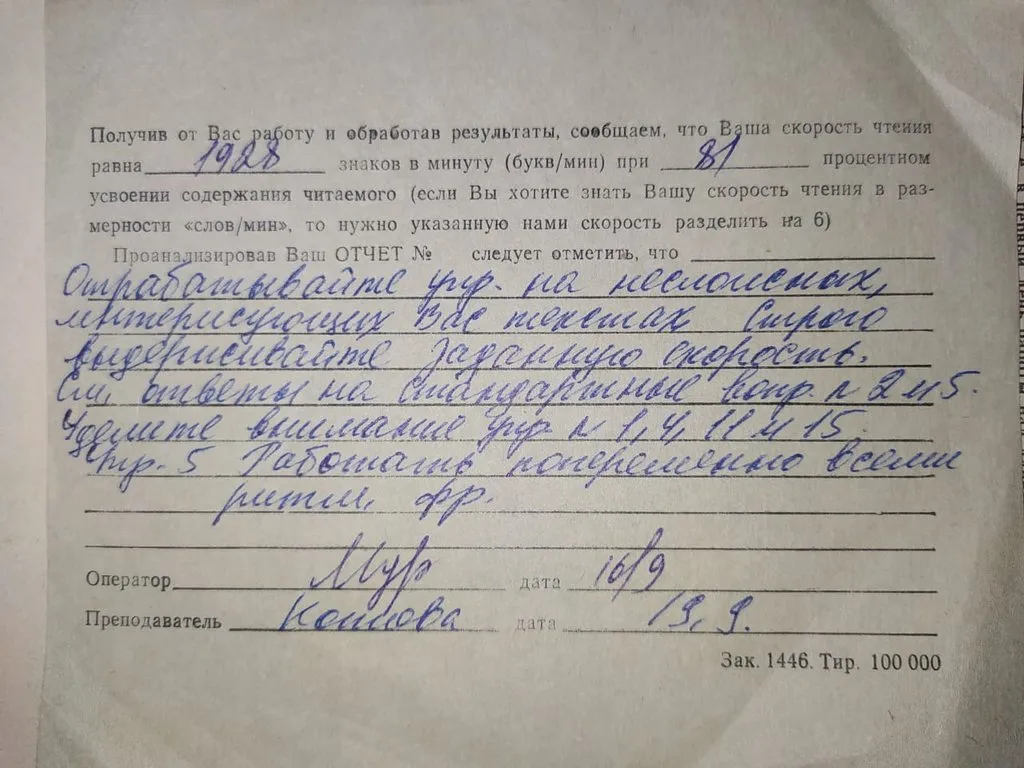 Получив от Вас работу и обработав результаты, сообщаем, что Ваша скорость чтения
равна 1928 знаков в минуту (букв/мин) при 81 процентном
усвоении содержания читаемого (если Вы хотите знать Вашу скорость чтения в раз-
мерности «слов/мин», то нужно указанную нами скорость разделить на 6)
Проанализировав Ваш ОТЧЕТ № следует отметить, что
Отрабатывайте упр. на несложных,
интересующих Вас текстах. Строго
выдерживайте заданную скорость.
См. ответы на стандартные вопр. № 2 и 5.
Уделите внимание упр. № 1, 4, 11 и 15.
Упр. 5 Работать попеременно всеми
ритм. фр.
Оператор Мур дата 16/9
Преподаватель дата 19.9.
Зак. 1446. Тир. 100 000